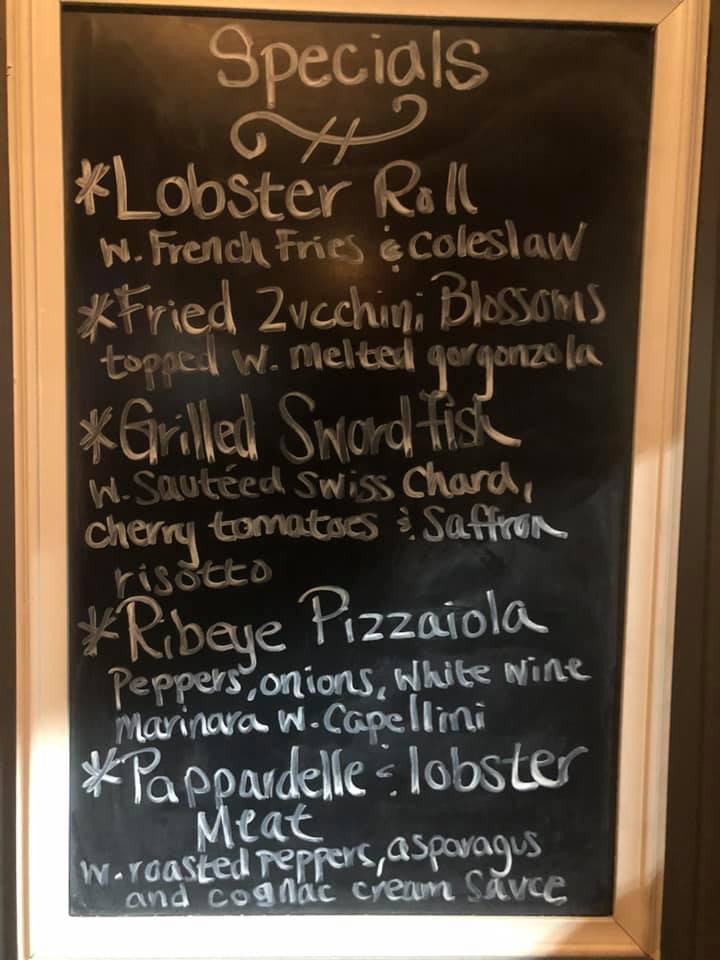 Specials
*Lobster Roll
w. French Fries & coleslaw
*Fried Zucchini Blossoms
topped w. melted gorgonzola
*Grilled Swordfish
w. Sautéed Swiss Chard,
cherry tomatoes & Saffron
risotto
*Ribeye Pizzaiola
Peppers, onions, white wine
marinara w. Capellini
*Pappardelle & lobster
Meat
w. roasted peppers, asparagus
and cognac cream Sauce